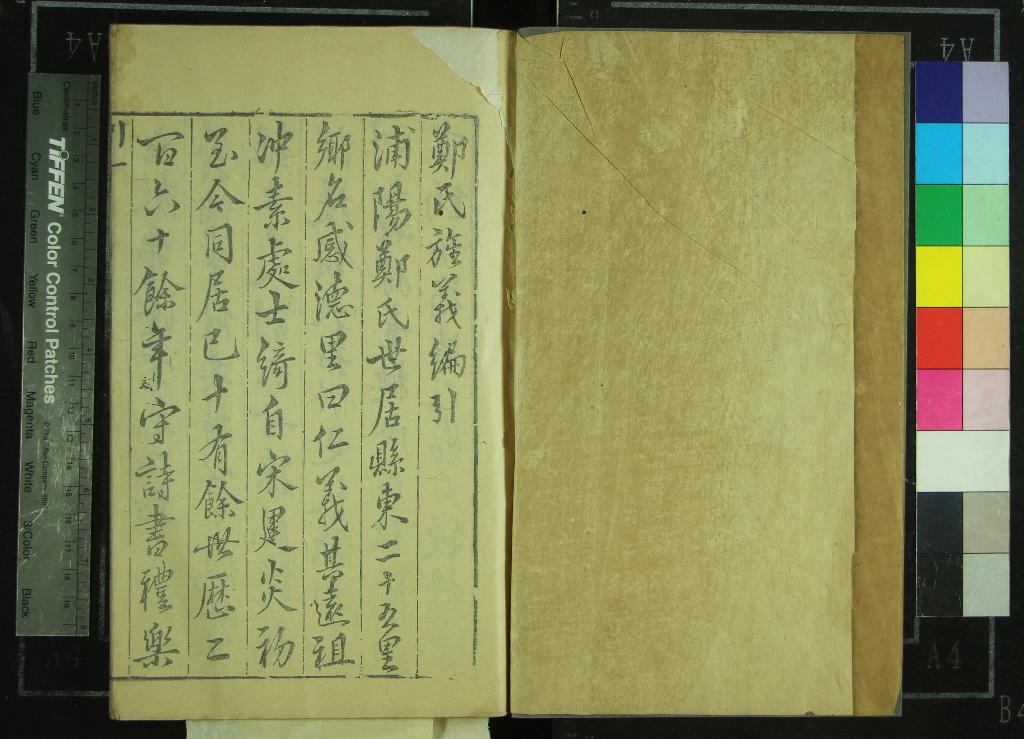 鄭氏旌義編引
浦陽鄭氏世居縣東二十五里
鄉名感德里曰仁義其遠祖
冲素處士綺自宋建炎初
至今同居已十有餘世歴二
百六十餘年守詩書禮樂
引一
TIFFEN Color Control Patches
Centimetres
Inches
Blue
Cyan
Green
Yellow
Red
Magenta
White
3/Color
Black
A4
A4
A4
A4